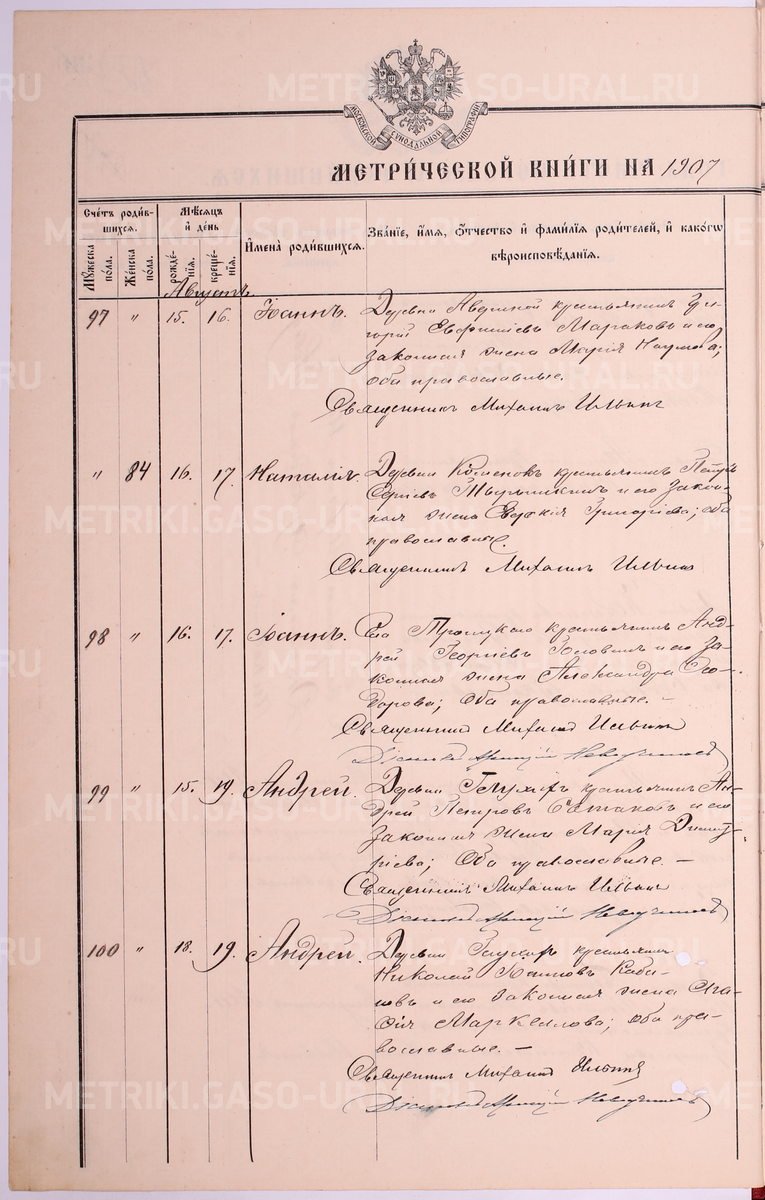 МОСКОВСКОЙ СѴНОДАЛЬНОЙ ТИПОГРАФІИ
МЕТРИ́ЧЕСКОЙ КНИ́ГИ НА 1907
Сче́тъ роди́в-
шихся.
Мꙋ́жеска
по́ла.
Же́нска
по́ла.
Мѣ́сяцъ
и҆ де́нь
рожде́-
нїѧ.
креще́-
нїѧ.
И҆мена̀ роди́вшихся.
Зва́нїе, и҆́мѧ, ѻ҆́тчество и҆ фами́лїѧ роди́телей, и҆ како́гѡ
вѣроисповѣ́данїѧ.
Августъ.
97 " 15. 16. Іоаннъ. Деревни крестьянинъ Гри-
горій Мараковъ и его
законная жена Марія Наумова;
оба православные.
Священникъ Михаилъ Ильинъ
" 84 16. 17. Наталія. Деревни крестьянинъ Петръ
Сергіевъ и его закон-
ная жена Григоріева; оба
православные.
Священникъ Михаилъ Ильинъ
98 " 16. 17. Іоаннъ. Села Троицкаго крестьянинъ Анд-
рей Георгіевъ и его за-
конная жена Александра Ѳео-
дорова; Оба православные. —
Священникъ Михаилъ Ильинъ
99 " 15. 19. Андрей. Деревни крестьянинъ Ан-
дрей Петровъ и его
законная жена Марія Димит-
ріева; Оба православные. —
Священникъ Михаилъ Ильинъ
100 " 18. 19. Андрей. Деревни крестьянинъ
Николай Каба-
новъ и его законная жена Ага-
фія Маркеллова; оба пра-
вославные. —
Священникъ Михаилъ Ильинъ
METRIKI.GASO-URAL.RU